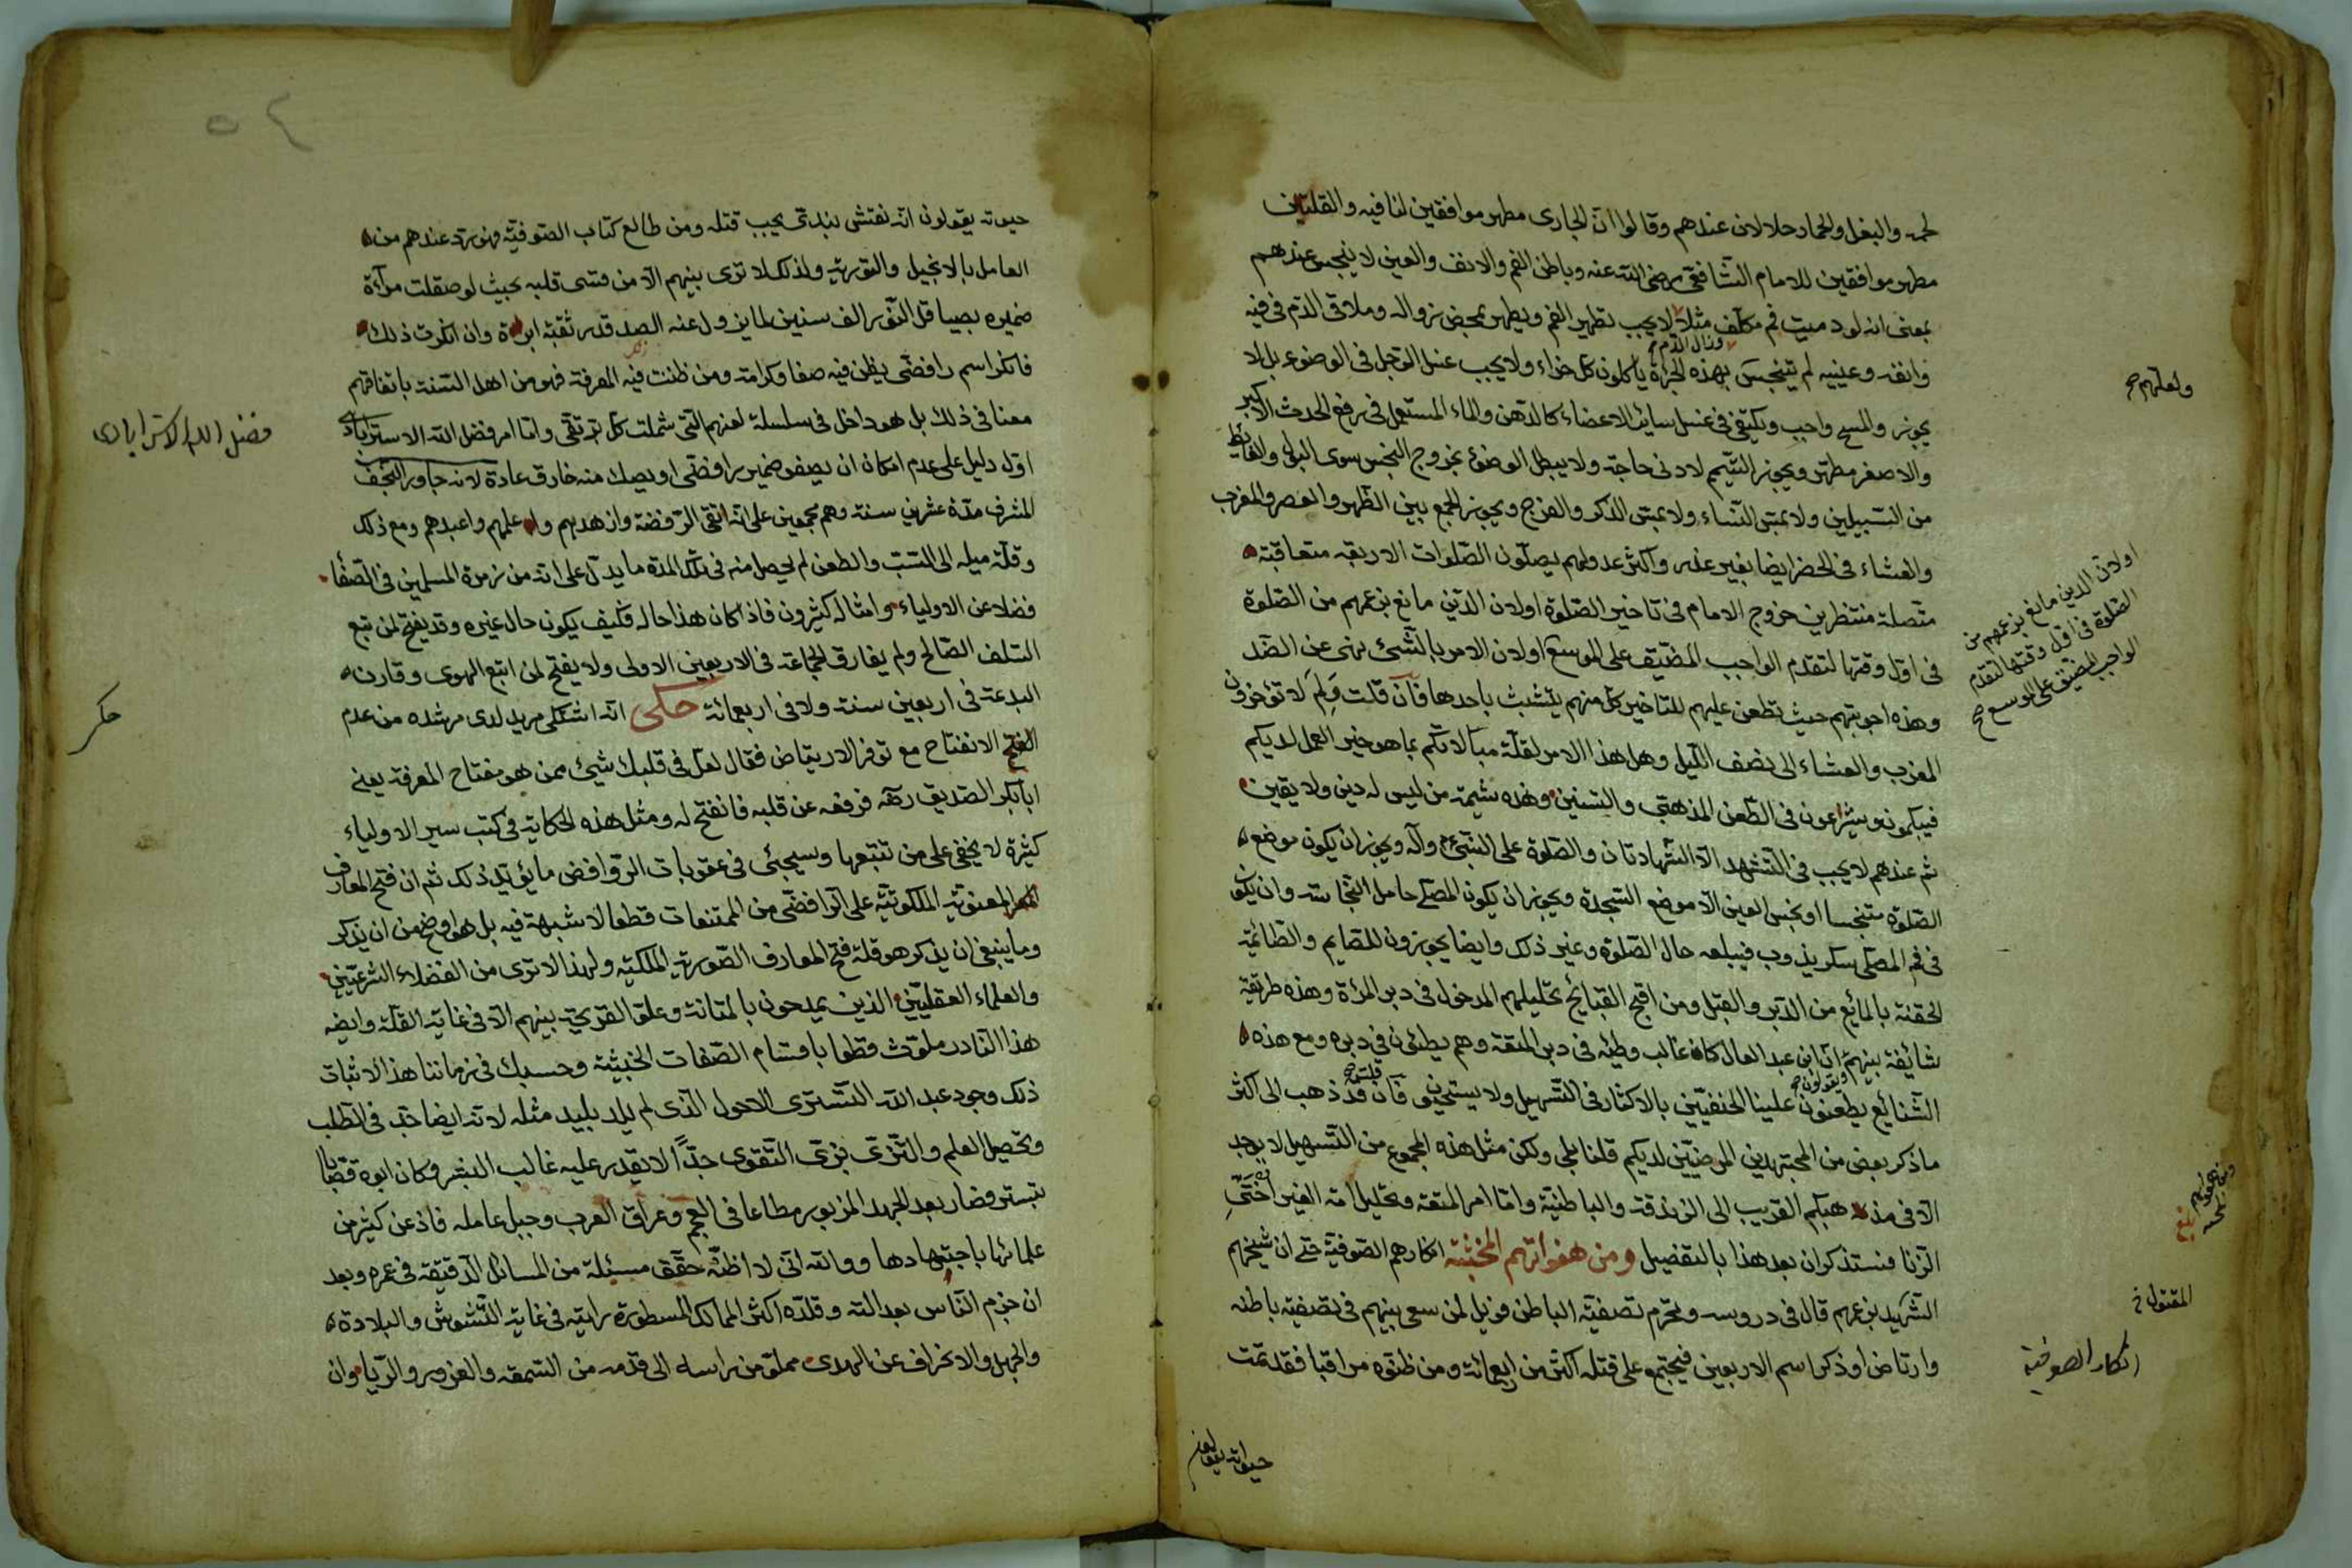 لحمه والبغل والحمار حلالان عندهم وقالوا ان الجارى مطهر موافقين لنا فيه والقلتين
مطهر موافقين للامام الشافعى رضى الله عنه وباطن الفم والانف والعين لا ينجس عندهم
بمعنى انه لو دميت فم مكلف مثلا لا يجب تطهير الفم ويطهر بمحض زواله وملاقى الدم فى فيه
وزال الدم
وانفه وعينيه لم يتنجس بهذه الجراة ياكلون كل خراء ولا يجب غسل الرجل فى الوضوء بل لا
ولعلهم صح
يجوز والمسح واجب ويكتفى فى غسل سائر الاعضاء كالدهن والماء المستعمل فى رفع الحدث الاكبر
والاصغر مطهر ويجوز التيمم لادنى حاجة ولا يبطل الوضوء بخروج النجس سوى البول والغائط
من السبيلين ولا بمس النساء ولا بمس الذكر والفرج ويجوز الجمع بين الظهر والعصر والمغرب
والعشاء فى الحضر ايضا بغير عذر واكثر عدولهم يصلون الصلوات الاربعة متعاقبة
متصلة منتظرين خروج الامام فى تاخير الصلوة اولان الدين مانع بزعمهم من الصلوة
اولان الدين مانع بزعمهم من
الصلوة فى اول وقتها لتقدم
الواجب المضيق على الموسع صح
فى اول وقتها لتقدم الواجب المضيق على الموسع اولان الامر بالشئ نهى عن الضد
وهذه اجوبتهم حيث تطعن عليهم للتاخير كل منهم يتشبث باحدها فان قلت ولم لا تؤخرون
المغرب والعشاء الى نصف الليل وهل هذا الا من لقلة مبالاتكم بما هو خير العمل لديكم
فيبكمون ويشرعون فى الطعن المذهبى والتسنين وهذه شيمة من ليس له دين ولا يقين
ثم عندهم لا يجب فى التشهد الا الشهادتان والصلوة على النبى وآله ويجوز ان يكون موضع
الصلوة متنجسا او نجس العين الا موضع السجدة ويجوز ان يكون المصلى حامل النجاسة وان يكون
فى فم المصلى سكر يذوب فيبلعه حال الصلوة وغير ذلك وايضا يجوزون للصايم والصائمة
الحقنة بالمائع من الدبر والقبل ومن اقبح القبائح تحليلهم المدخول فى دبر المرأة وهذه طريقة
شائعة بينهم ان ابن عبد العال كان غالب وطئه فى دبر المتعة وهم يطئون فى دبره ومع هذه
الشنائع يطعنون علينا الحنفيين بالاكثار فى التسهيل ولا يستحيون فان قلت قد ذهب الى اكثر
ويقولون صح
ما ذكر بعض من المجتهدين المرضيين لديكم قلنا بلى ولكن مثل هذه المجموع من التسهيل لا يوجد
الا فى مذهبكم القريب الى الزندقة والباطنية واما امر المتعة وتحليل امة الغير
الزنا فستذكران بعد هذا بالتفصيل ومن هفواتهم المخبثة انكارهم الصوفية حتى ان شيخهم
الشهيد بزعمهم قال فى دروسه ويحرم تصفية الباطن فويل لمن سعى بينهم فى تصفية باطنه
المقتول خ
وارتاض او ذكر اسم الاربعين فيجتمع على قتله اكثر من اربعمائة ومن ظنوه مراقبا فقد تمت
انكار الصوفية
حيوته يقولون
٥٤
حيوته يقولون انه نقشبندى يجب قتله ومن طالع كتاب الصوفية فهو برتد عندهم من
العامل بالانجيل والتورية ولذلك لا ترى بينهم الا من قسى قلبه بحيث لو صقلت مرآة
ضميره بصياقل النور الف سنين لما يزول عنه الصد قدر ثقبة ابرة وان انكرت ذلك
فاذكر اسم رافضى يظن فيه صفا وكرامة ومن ظننت فيه المعرفة فهو من اهل السنة باتفاقهم
معنا فى ذلك بل هو داخل فى سلسلة لعنهم التى شملت كل تقى واما امر فضل الله الاسترابادى
فضل الله الاسترابادى
اول دليل على عدم امكان ان يصفو ضمير رافضى او يصل منه خارق عادة لانه جاور النجف
المشرف مدة عشرين سنة وهم مجمعين على انه اتقى الرفضة وازهدهم واعلمهم واعبدهم ومع ذلك
وقلة ميله الى السب والطعن لم يحصل منه فى تلك المدة ما يدل على انه من زمرة المسلمين فى الصفا
فضلا عن الاولياء وامثاله كثيرون فاذا كان هذا حاله فكيف يكون حال غيره وقد يفتح لمن تبع
السلف الصالح ولم يفارق الجماعة فى الاربعين الاولى ولا يفتح لمن اتبع الهوى وقارن
البدعة فى اربعين سنة ولا فى اربعمائة حكى انه اشتكى مريد لدى مرشده من عدم
الفتح الانفتاح مع توفر الارتياض فقال لعل فى قلبك شئ ممن هو مفتاح المعرفة يعنى
ابابكر الصديق رضه فرفعه عن قلبه فانفتح له ومثل هذه الحكاية فى كتب سير الاولياء
كثيرة لا يخفى على من تتبعها وسيجئ فى عقوبات الروافض ما يؤيد ذلك ثم ان فتح المعارف
المعنوية الملكوتية على الرافضى من الممتنعات قطعا لا شبهة فيه بل هو اوضح من ان يذكر
وما ينبغى ان يذكر هو قلة فتح المعارف الصورية الملكية ولهذا لا ترى من الفضلاء الشرعيين
والعلماء العقليين الذين يمدحون بالمتانة وعلو القريحة بينهم الا فى غاية القلة وايضه
هذا النادر ملوث قطعا باقسام الصفات الخبيثة وحسبك فى زماننا هذا لاثبات
ذلك وجود عبد الله التسترى الاحول الذى لم يلد بليد مثله لانه ايضا جد فى الطلب
وتحصيل العلم والتزى بزى التقوى جدا لا يقدر عليه غالب البشر وكان ابوه قصابا
بتستر فصار بعد الجهد المزبور مطاعا فى العجم وعراق العرب وجبل عامله فاذعن كثير من
علمائها باجتهادها ووالله انى لا اظنه حقق مسئلة من المسائل الدقيقة فى عمره وبعد
ان جزم الناس بعدالته وقلده اكثر الممالك المسطورة رايته فى غاية التشوش والبلادة
والجهل والانحراف عن الهدى مملو من راسه الى قدمه من السمعه والغرور والريا وان